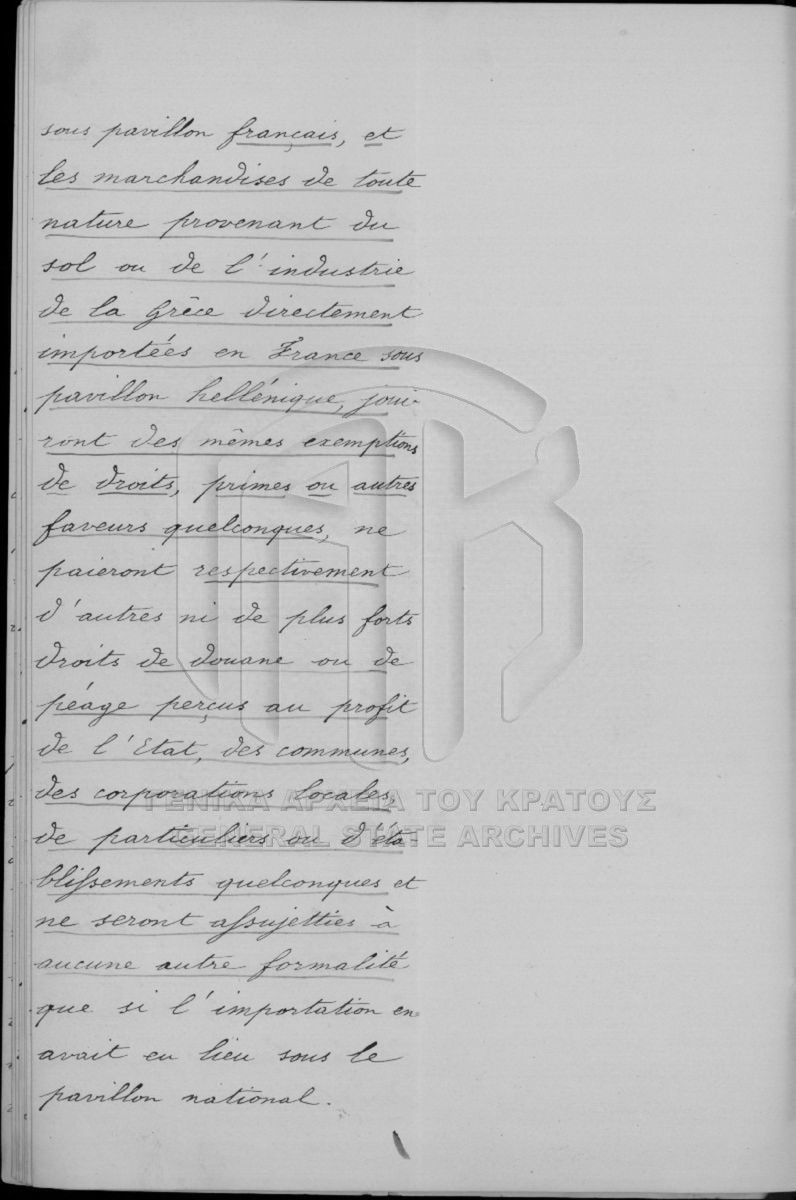 sous pavillon français, et
les marchandises de toute
nature provenant du
sol ou de l'industrie
de la Grèce directement
importées en France sous
pavillon hellénique, joui-
ront des mêmes exemptions
de droits, primes ou autres
faveurs quelconques, ne
paieront respectivement
d'autres ni de plus forts
droits de douane ou de
péage perçus au profit
de l'Etat, des communes,
des corporations locales,
ΓΕΝΙΚΑ ΑΡΧΕΙΑ ΤΟΥ ΚΡΑΤΟΥΣ
de particuliers ou d'éta-
GENERAL STATE ARCHIVES
blissements quelconques et
ne seront assujetties à
aucune autre formalité
que si l'importation en
avait eu lieu sous le
pavillon national.